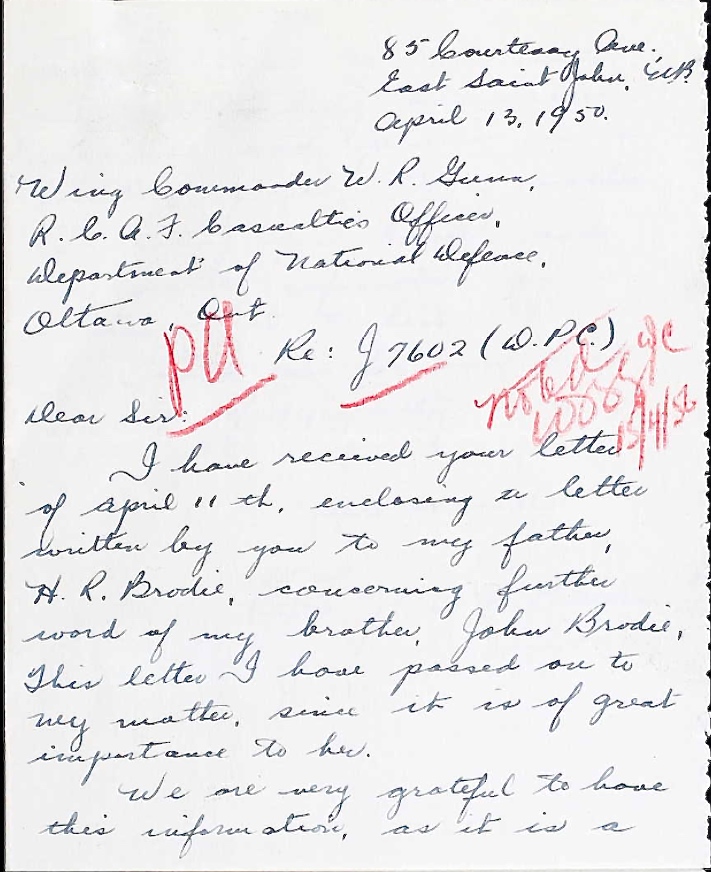 85 Courtenay Ave.,
East Saint John, N.B.
April 13, 1950.
Wing Commander W. R. Gunn,
R. C. A. F. Casualties Officer,
Department of National Defence,
Ottawa, Ont.
PA
Re: J 7602 (D.P.C.)
noted
Dear Sir:
15/4/50
I have received your letter
of April 11 th, enclosing a letter
written by you to my father,
H. R. Brodie, concerning further
word of my brother, John Brodie,
This letter I have passed on to
my mother, since it is of great
importance to her.
We are very grateful to have
this information, as it is a